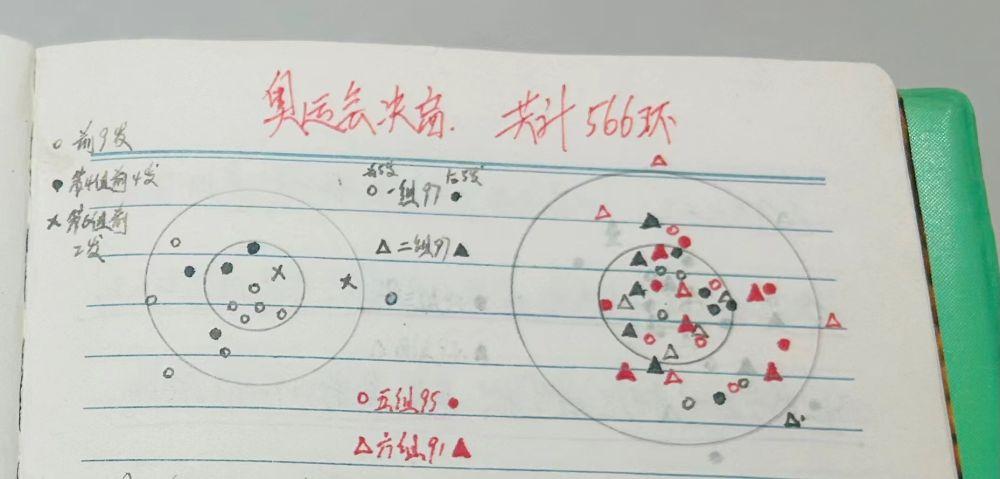 奥运会决赛. 共计566环
前9发
第4组前4发
第6组前
2发
前5发 后5发
一组97
二组97
五组95
六组91